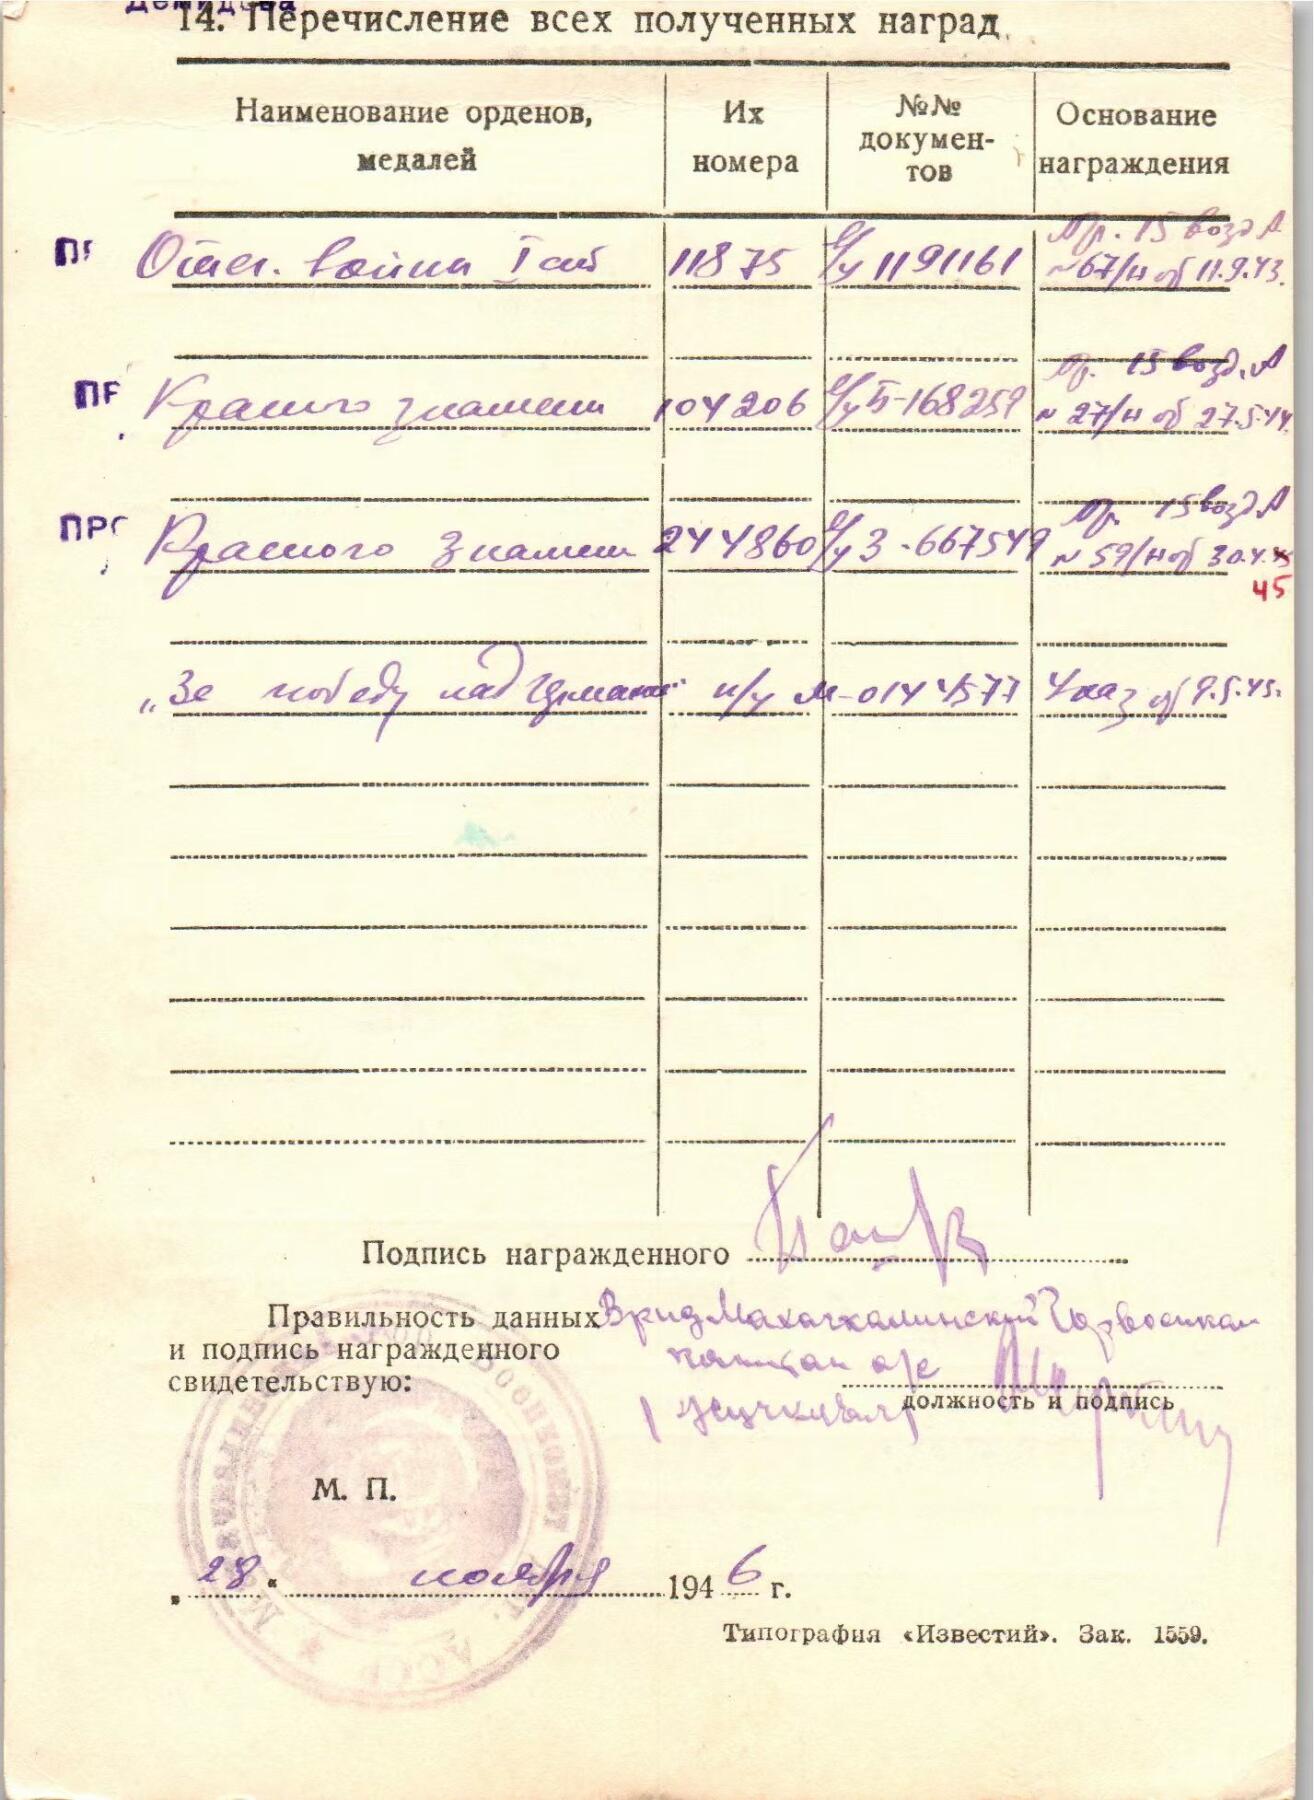 14. Перечисление всех полученных наград
Наименование орденов, медалей
Их номера
№№ докумен-
тов
Основание награждения
Пр. 15 возд. А
Отеч. война I ст 11875 У/у 1191161 № 67/н от 11.9.43.
Пр. 15 возд. А
Красного знамени 104206 У/у Б-168259 № 27/н от 27.5.44.
ПРО
Пр. 15 возд. А
Красного Знамени 244860 У/у З-667549 № 59/н от 30.4.45
45
„За победу над Германией" н/у М-0144577 Указ от 9.5.45.
Подпись награжденного
Правильность данных Врид Махачкалинский Горвоенком
и подпись награжденного капитан а/с
свидетельствую:
должность и подпись
М. П.
„28" ноября 1946 г.
Типография «Известий». Зак. 1559.